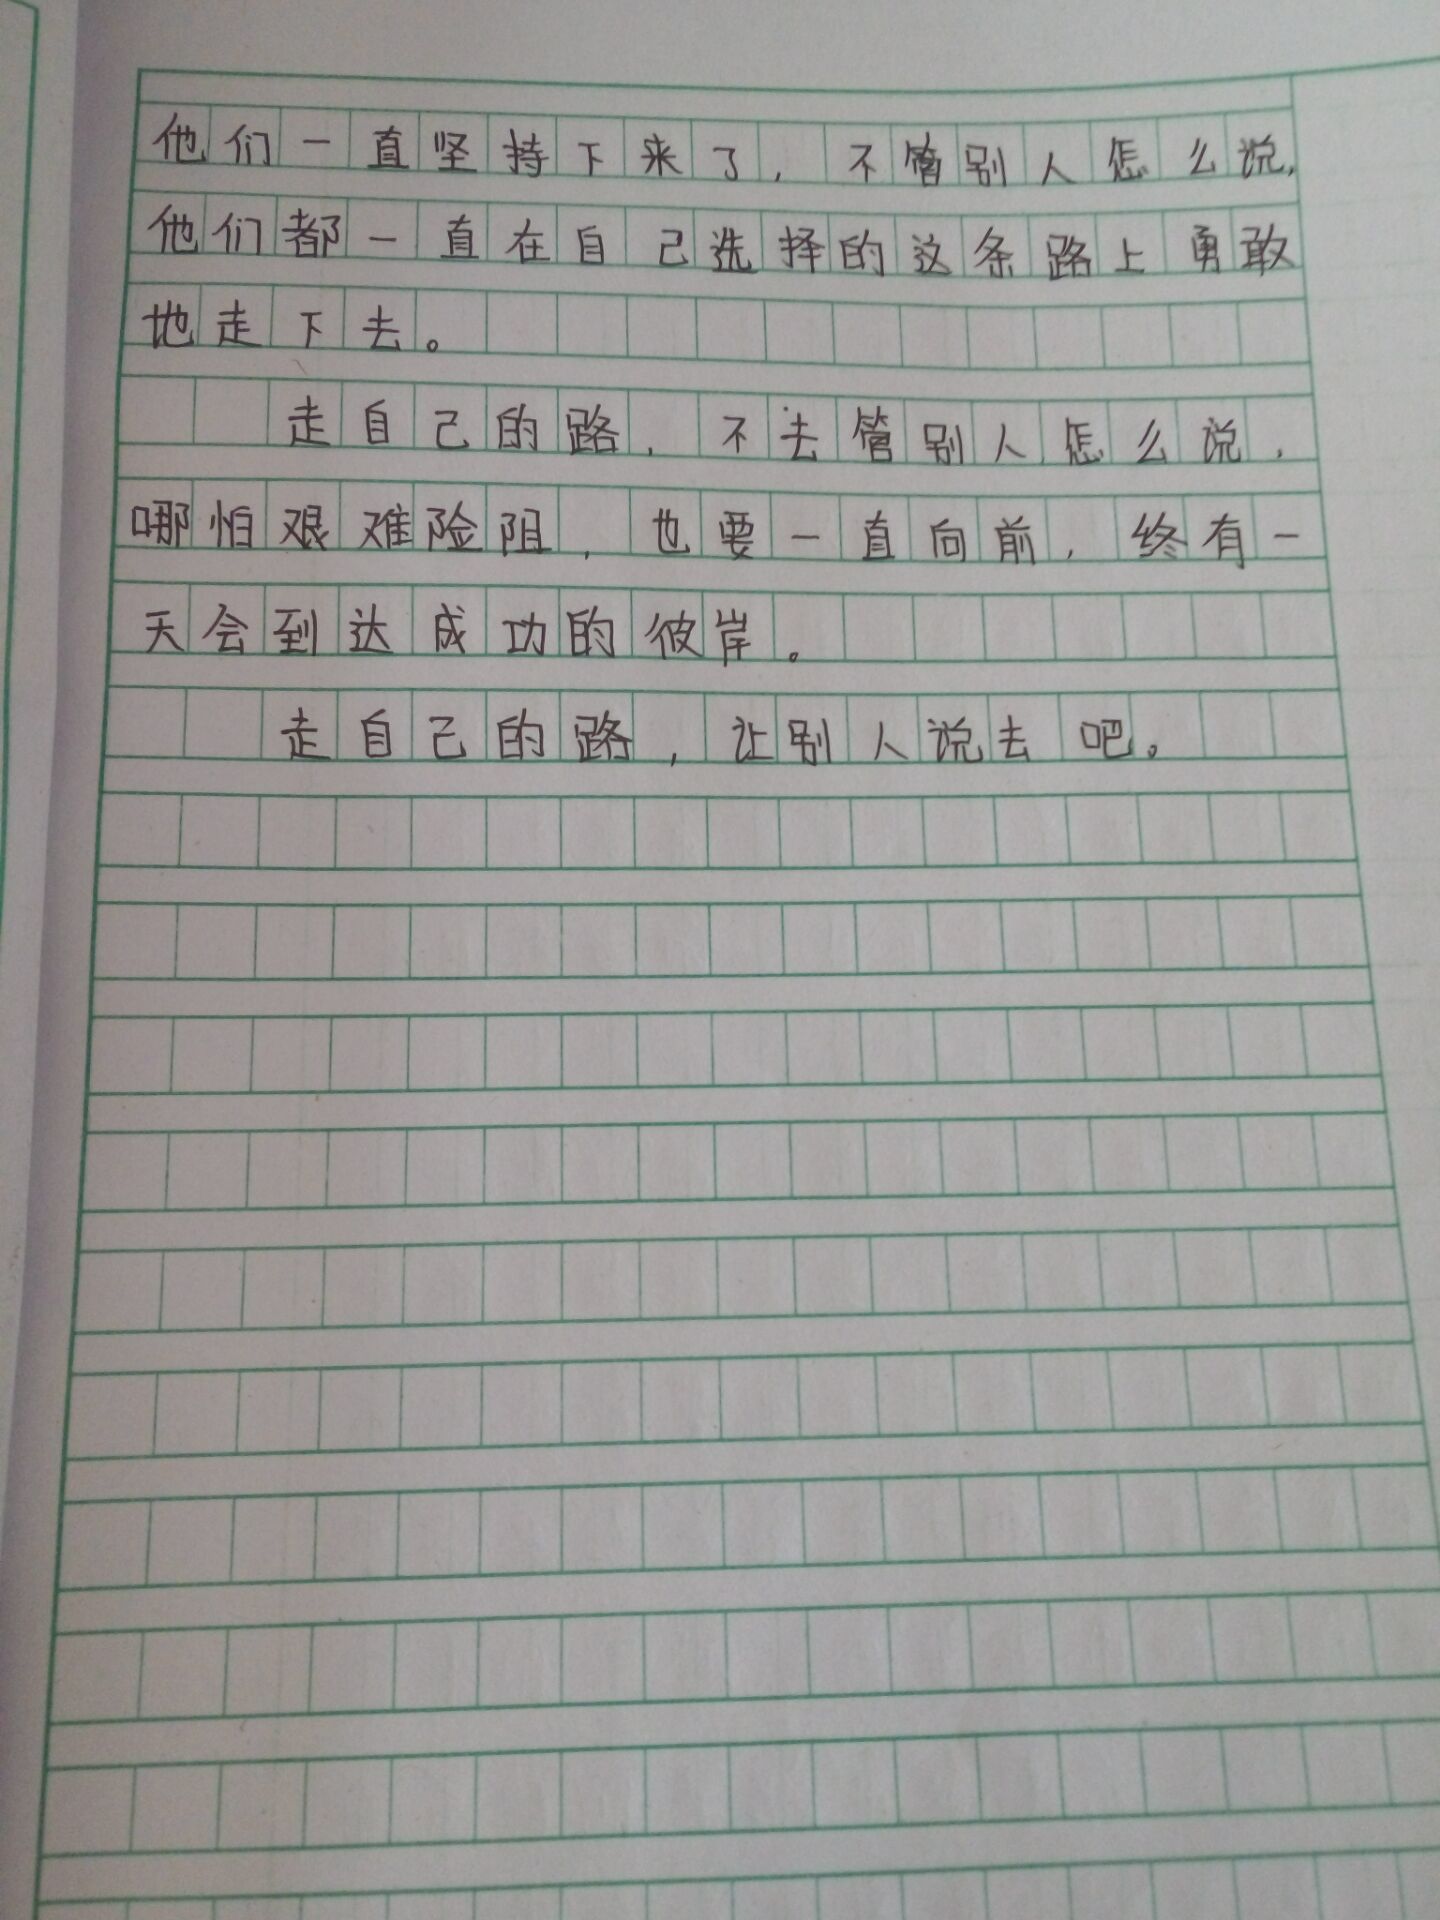 他们一直坚持下来了，不管别人怎么说，
他们都一直在自己选择的这条路上勇敢
地走下去。
走自己的路，不去管别人怎么说，
哪怕艰难险阻，也要一直向前，终有一
天会到达成功的彼岸。
走自己的路，让别人说去吧。